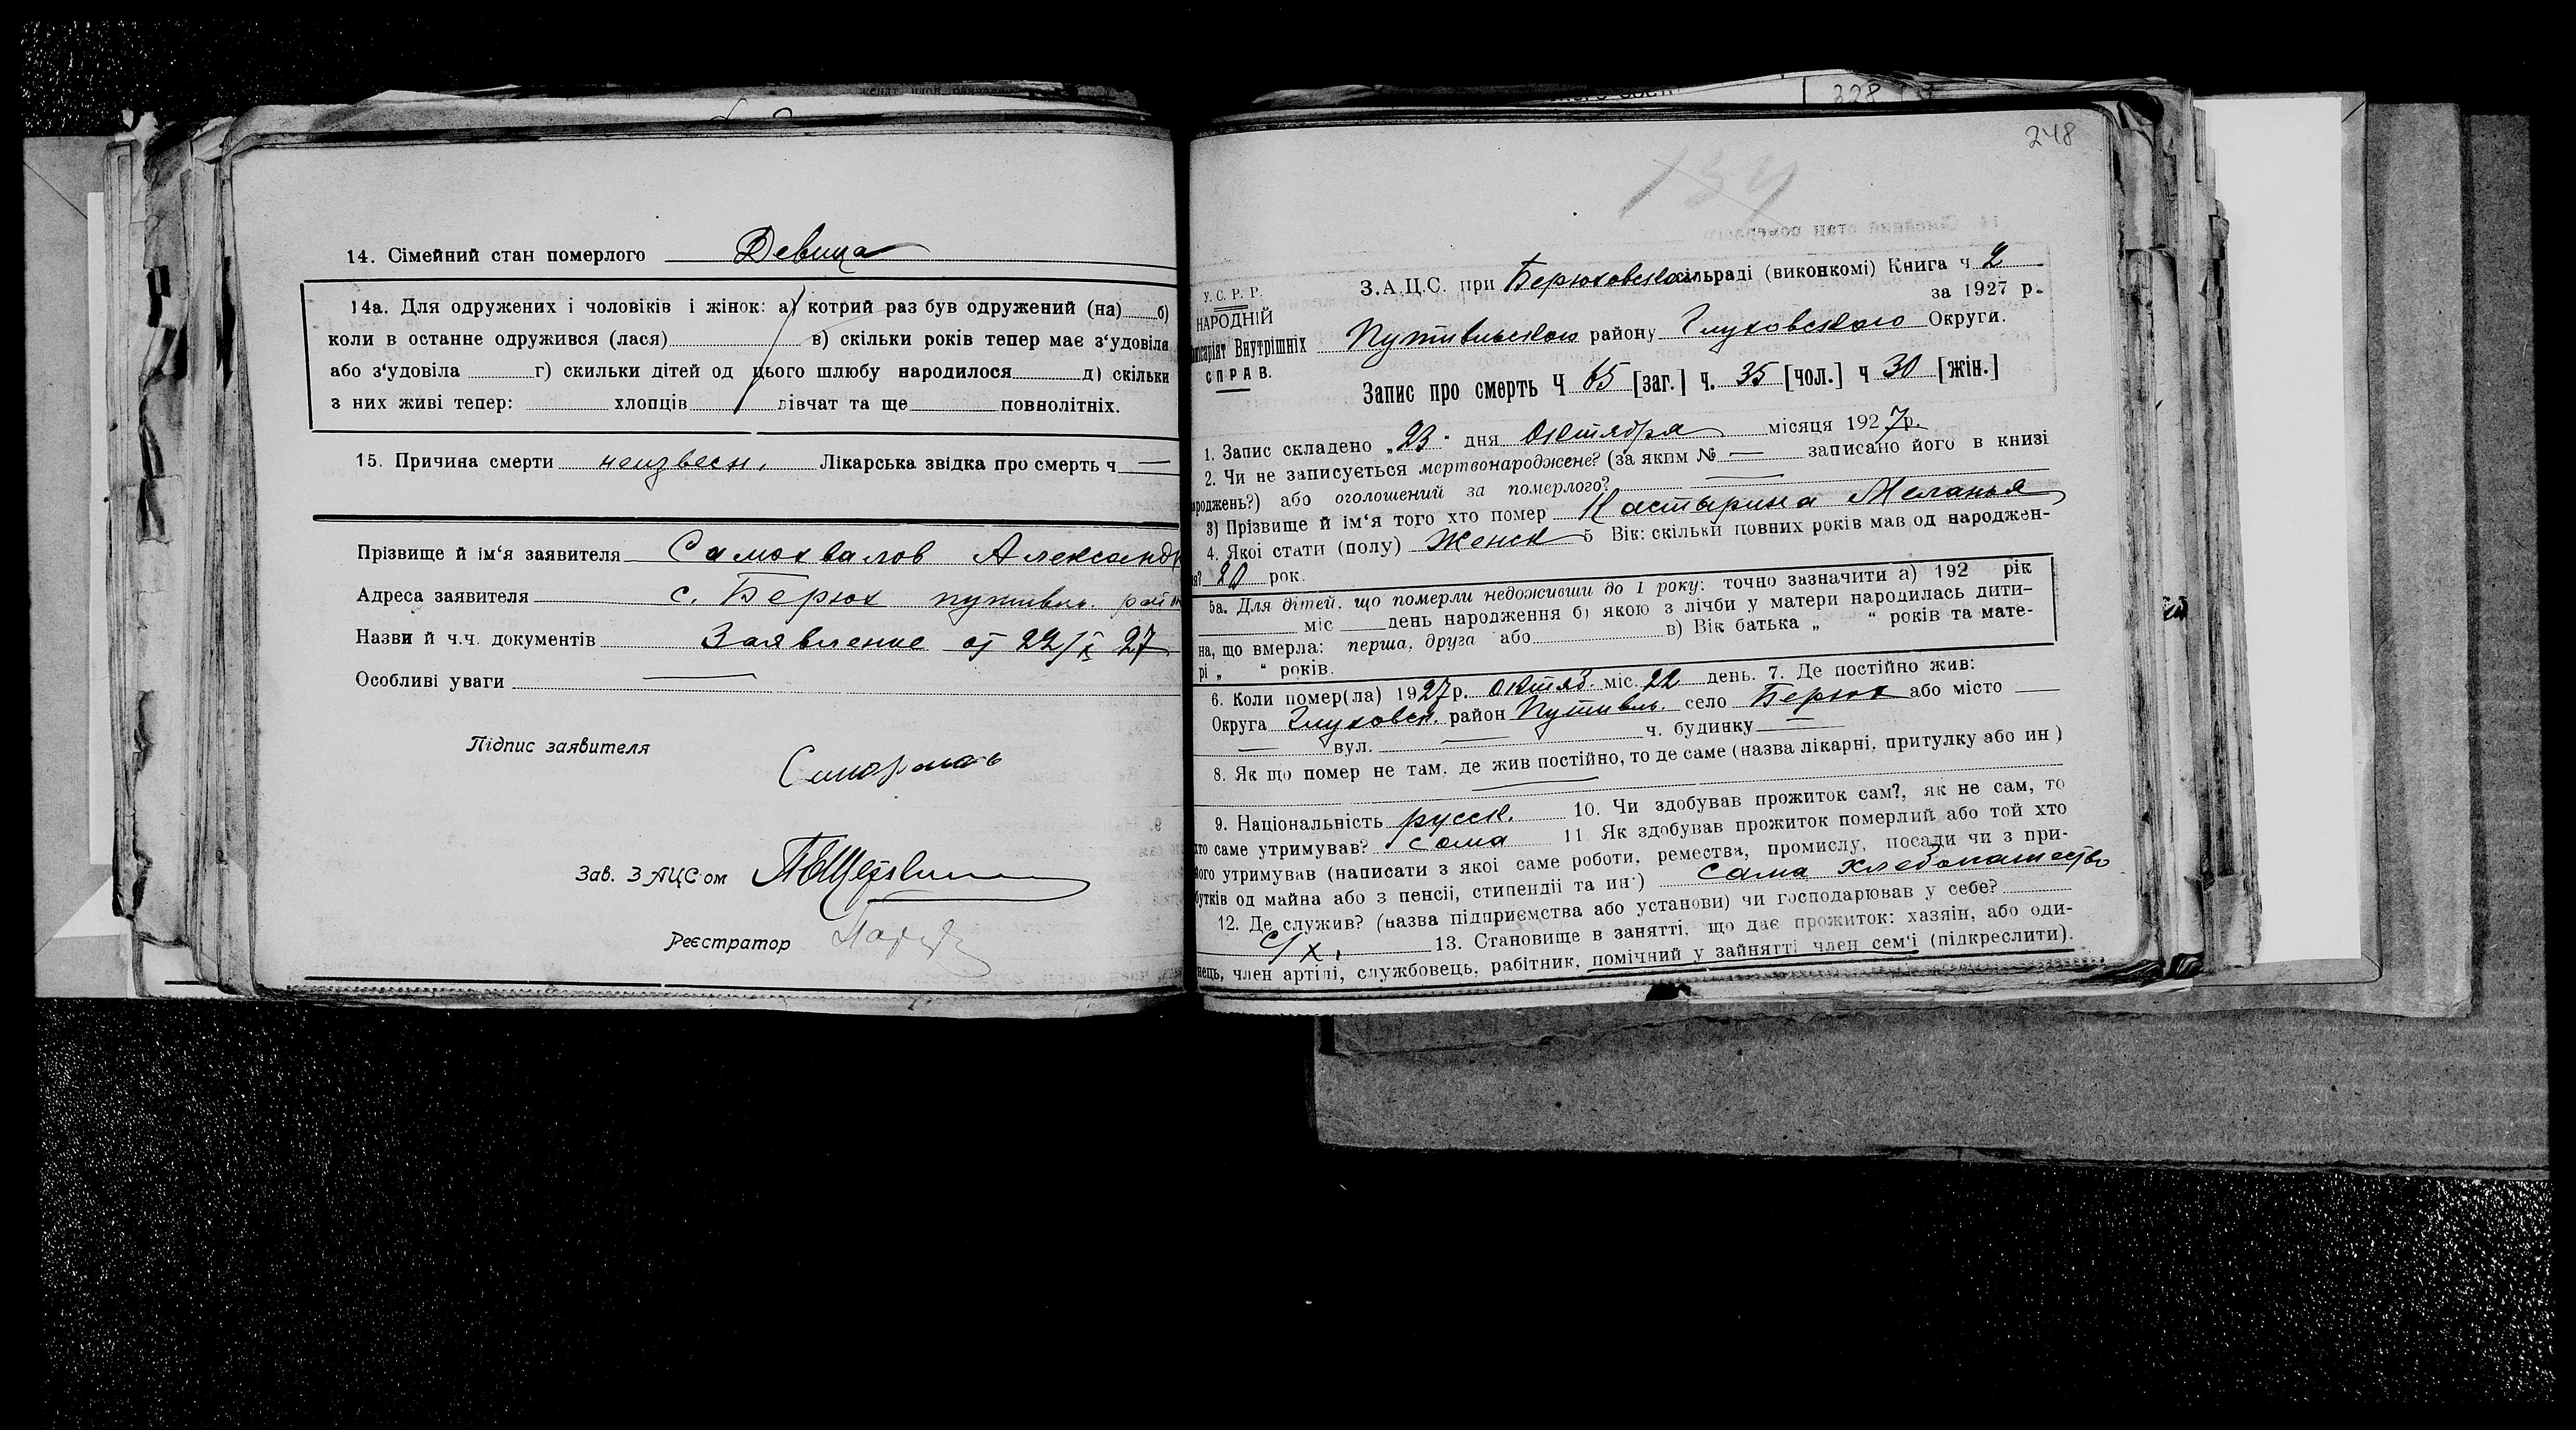 14. Сімейний стан померлого Девица
14а. Для одружених і чоловіків і жінок: а) котрий раз був одружений (на) б)
коли в останне одружився (лася) в) скільки років тепер має з'удовіла
або з'удовіла г) скильки дітей од цього шлюбу народилося д) скільки
з них живі тепер: хлопців дівчат та ще повнолітніх.
15. Причина смерти неизвесн. Лікарська звідка про смерть ч —
Прізвище й ім'я заявителя Самохвалов Александр
Адреса заявителя с. Берюх путивль. рай
Назви й ч.ч. документів Заявление от 22/X 27
Особливі уваги —
Підпис заявителя
Зав. ЗАЦС'ом
Реєстратор
328
248
134
У.С.Р.Р.
НАРОДНІЙ
Внутрішніх
СПРАВ.
З.А.Ц.С. при Берюховском сільраді (виконкомі) Книга ч 2
за 1927 р.
Путивльского району Глуховского Округи.
Запис про смерть Ч 65 [заг.] ч. 35 [чол.] ч 30 [жін.]
1. Запис складено „23" дня Октября місяця 1927р.
2. Чи не записується мертвонароджене? (за яким № — записано його в книзі
роджень?) або оголошений за померлого? —
3) Прізвище й ім'я того хто помер Кастырина Меланья
4. Якої стати (полу) Женск 5 Вік: скільки повних років мав од народжен-
ня? 20 рок.
5а. Для дітей, що померли недоживши до 1 року: точно зазначити а) 192 рік
міс день народження б) якою з лічби у матери народилась дити-
на, що вмерла: перша, друга або в) Вік батька „ “ років та мате-
рі „ “ років.
6. Коли помер(ла) 1927р. Октяб. міс. 22 день. 7. Де постійно жив:
Округа Глуховск. район Путивль. село Берюх або місто —
— вул. — ч. будинку —
8. Як що помер не там, де жив постійно, то де саме (назва лікарні, притулку або ин)
—
9. Національність русск. 10. Чи здобував прожиток сам?, як не сам, то
хто саме утримував? сама 11. Як здобував прожиток померлий або той хто
його утримував (написати з якої саме роботи, ремества, промислу, посади чи з при-
бутків од майна або з пенсії, стипендії та ин.) Сама хлебопашество
12. Де служив? (назва підприємства або установи) чи господарював у себе?
с/х. 13. Становище в занятті, що дає прожиток: хазяін, або оди-
нець, член артілі, службовець, рабітник, помічний у зайнятті член сем'і (підкреслити).